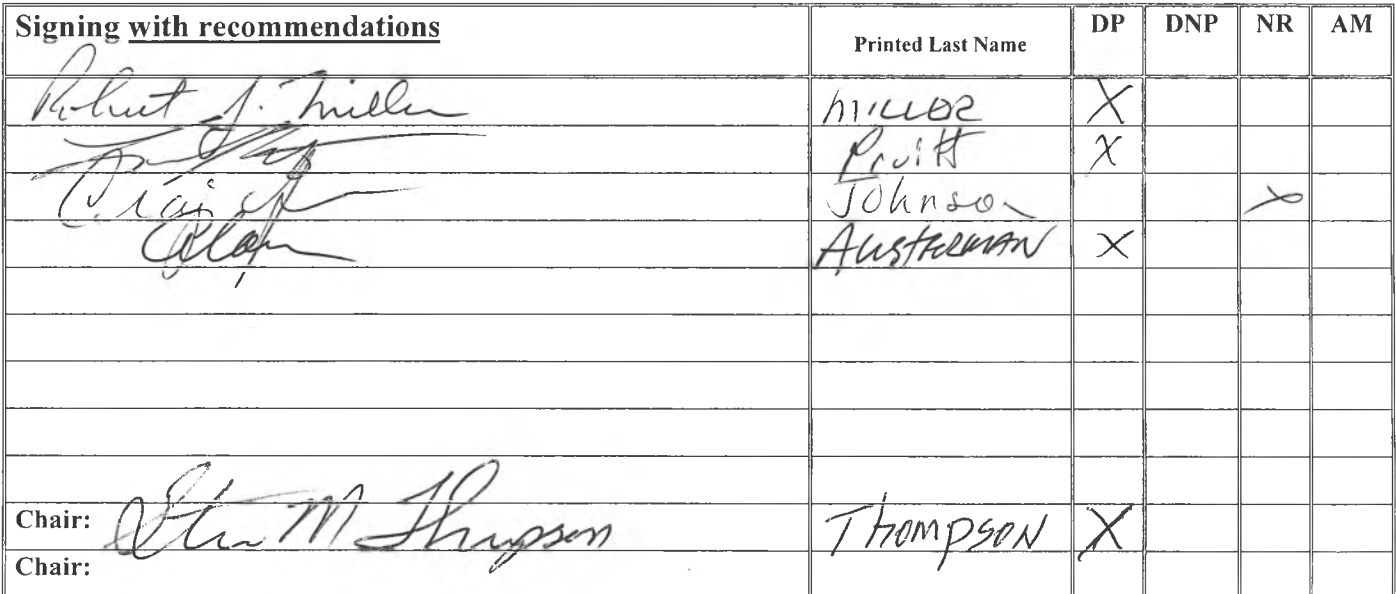 Signing with recommendations Printed Last Name DP DNP NR AM
Robert J. Miller MILLER X
Pruitt X
Craig Johnson X
Alan AUSTERMAN X
Chair: Steve M Thompson THOMPSON X
Chair: